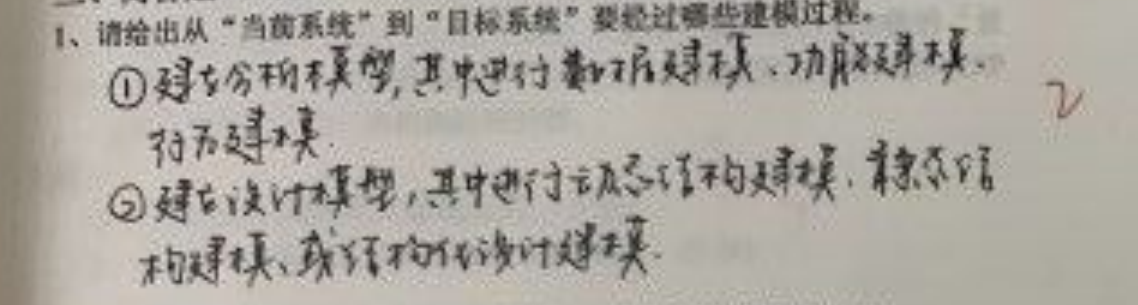 1、请给出从“当前系统”到“目标系统”要经过哪些建模过程。
①建立分析模型,其中进行数据建模、功能建模、
行为建模.
②建立设计模型,其中进行动态结构建模、静态结
构建模、或结构化设计建模.
2